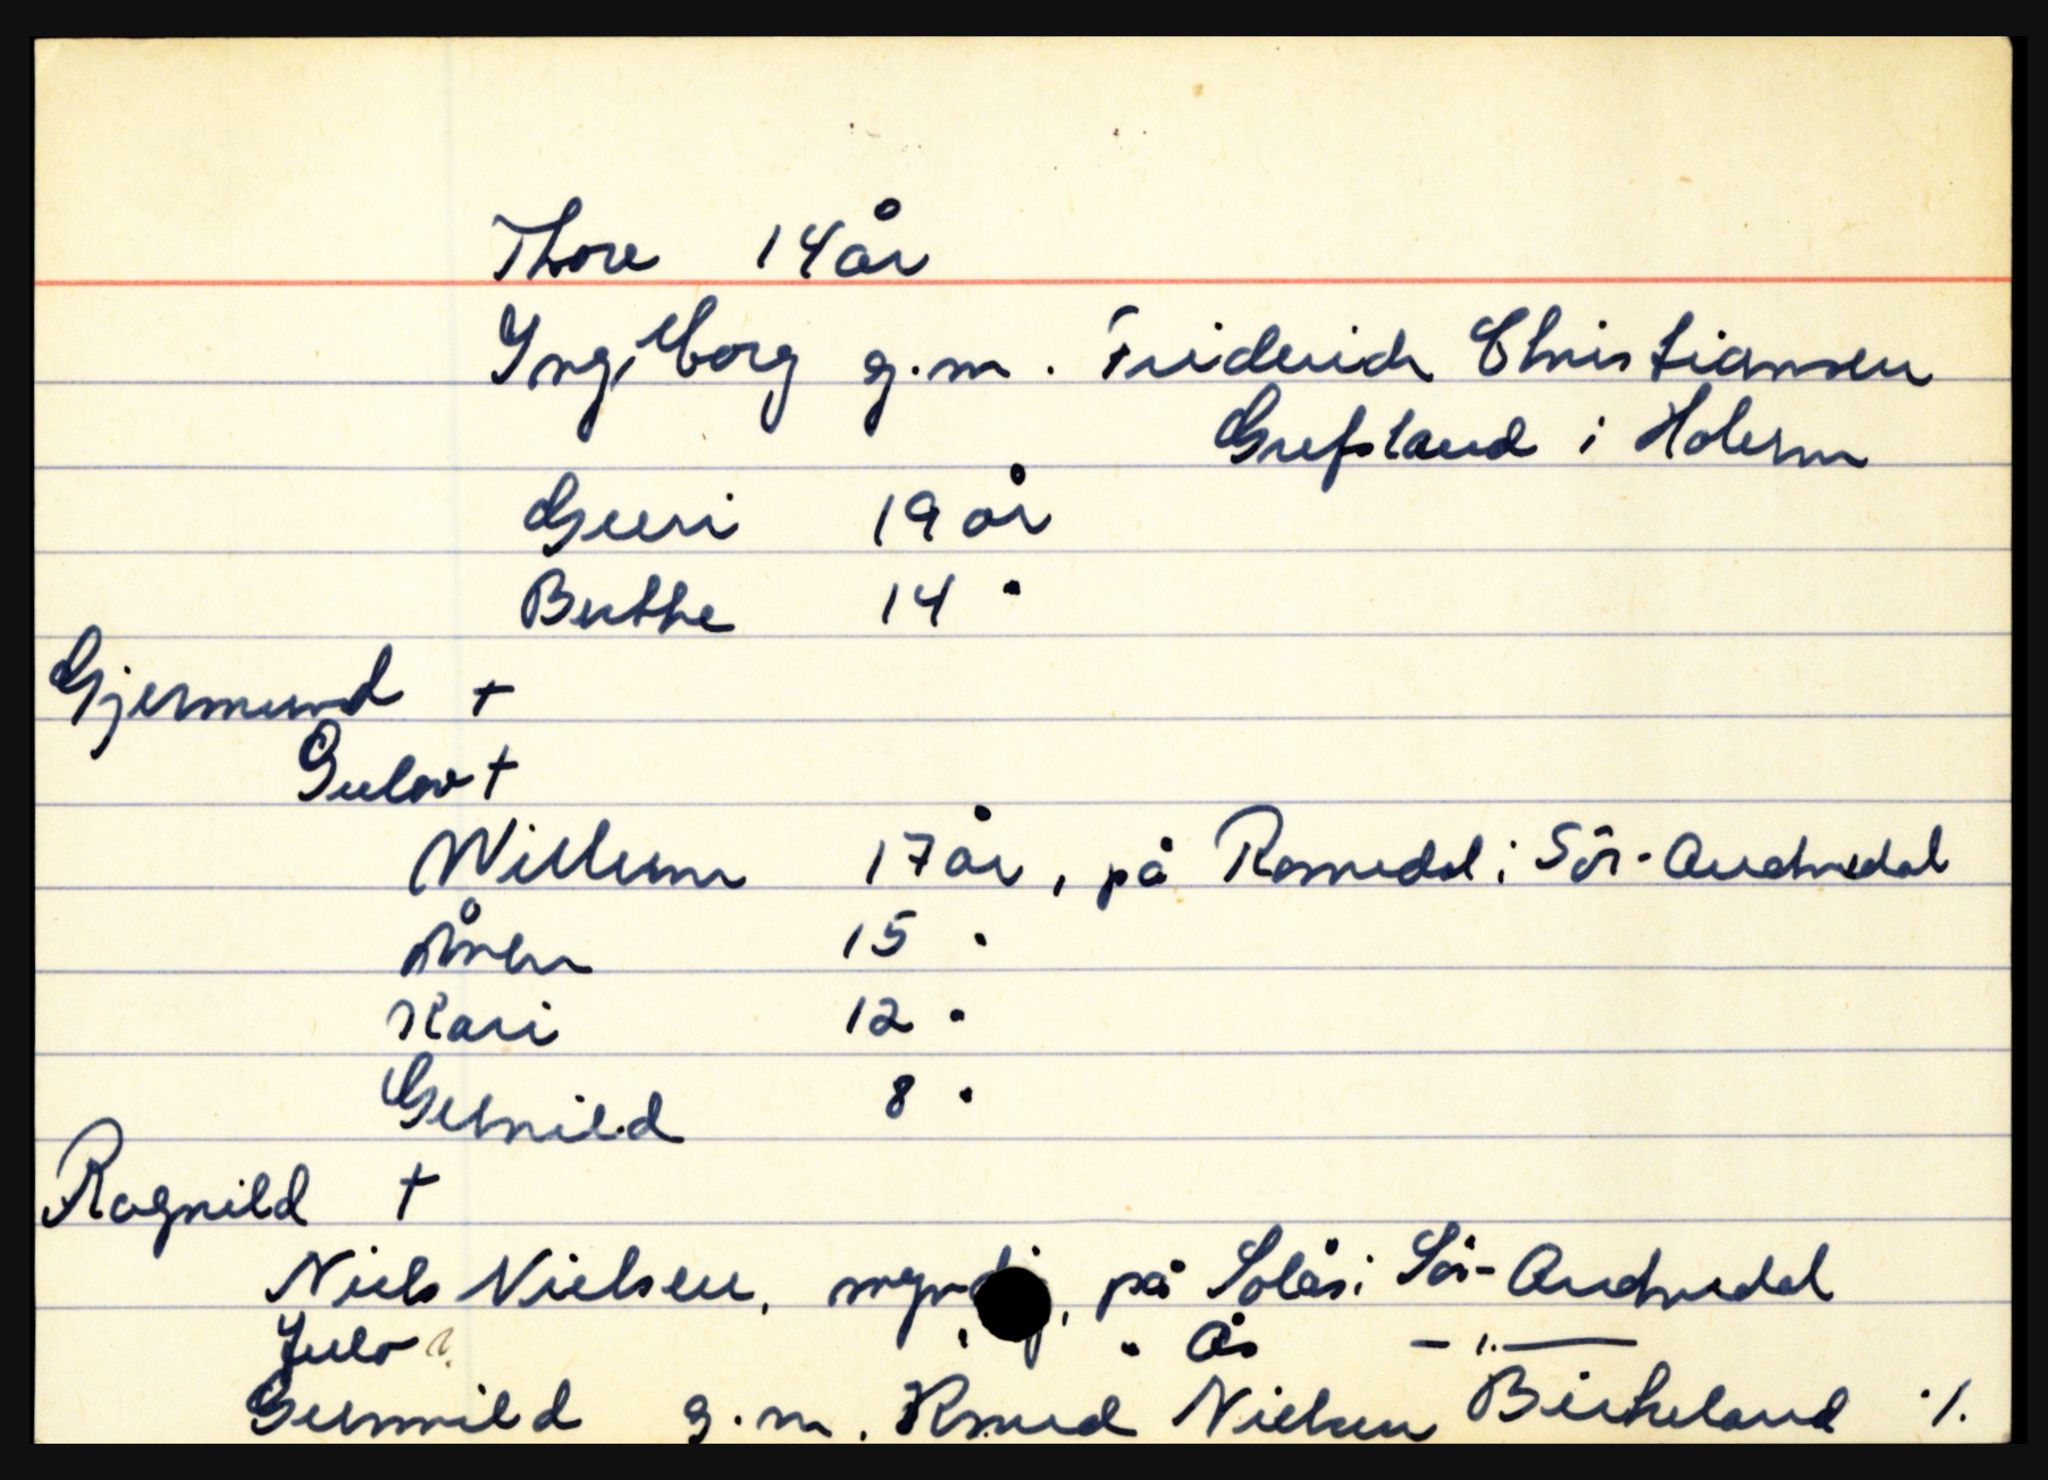 Thore 14 år
Ingelborg g.m. Friderich Christiansen
Grefstand i Holum
Guri 19 år
Berthe 14 "
Gjermund †
Gulov †
Willum 17 år, på Romedal i Sör-Audnedal
Ånen 15 "
Kari 12 "
Gunild 8 "
Ragnild †
Niels Nielsen, myndig, på Solås i Sör-Audnedal
" " Ås — " —
Gunnild g.m. Knud Nielsen Birkeland ·/.